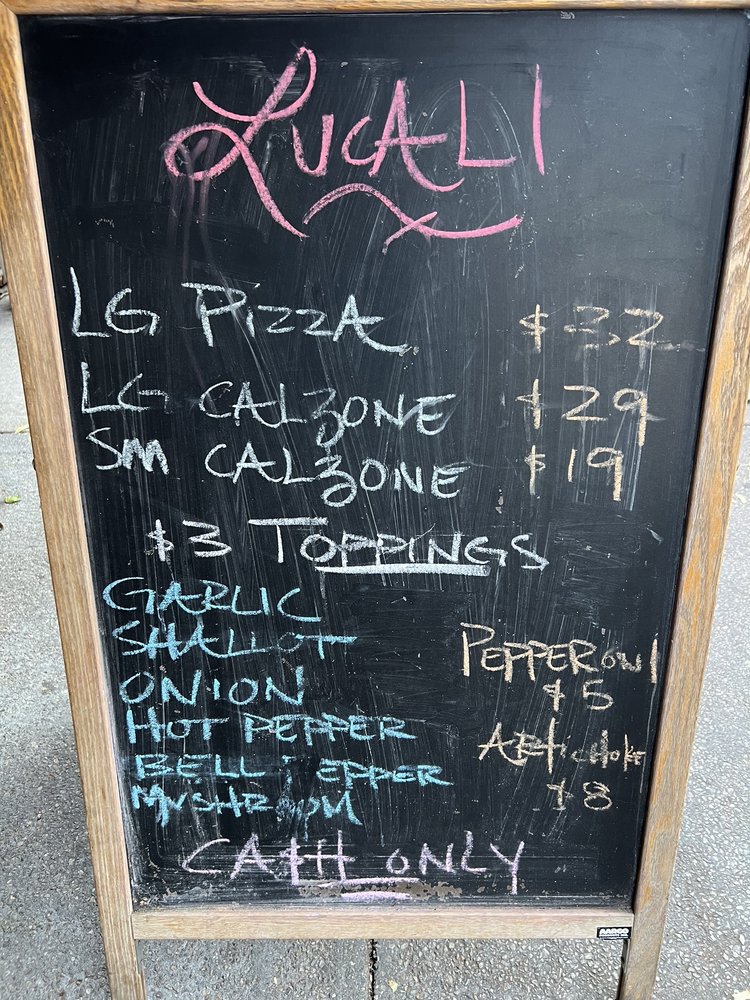 LUCALI
LG PizzA $32
LG CALZONE $29
SM CALZONE $19
$3 TOPPINGS
GARLIC
SHALLOT
ONION
HOT PEPPER
BELL PEPPER
MUSHROOM
PEPPERONI
$5
ARTichoKE
$8
CASH ONLY
AARCO